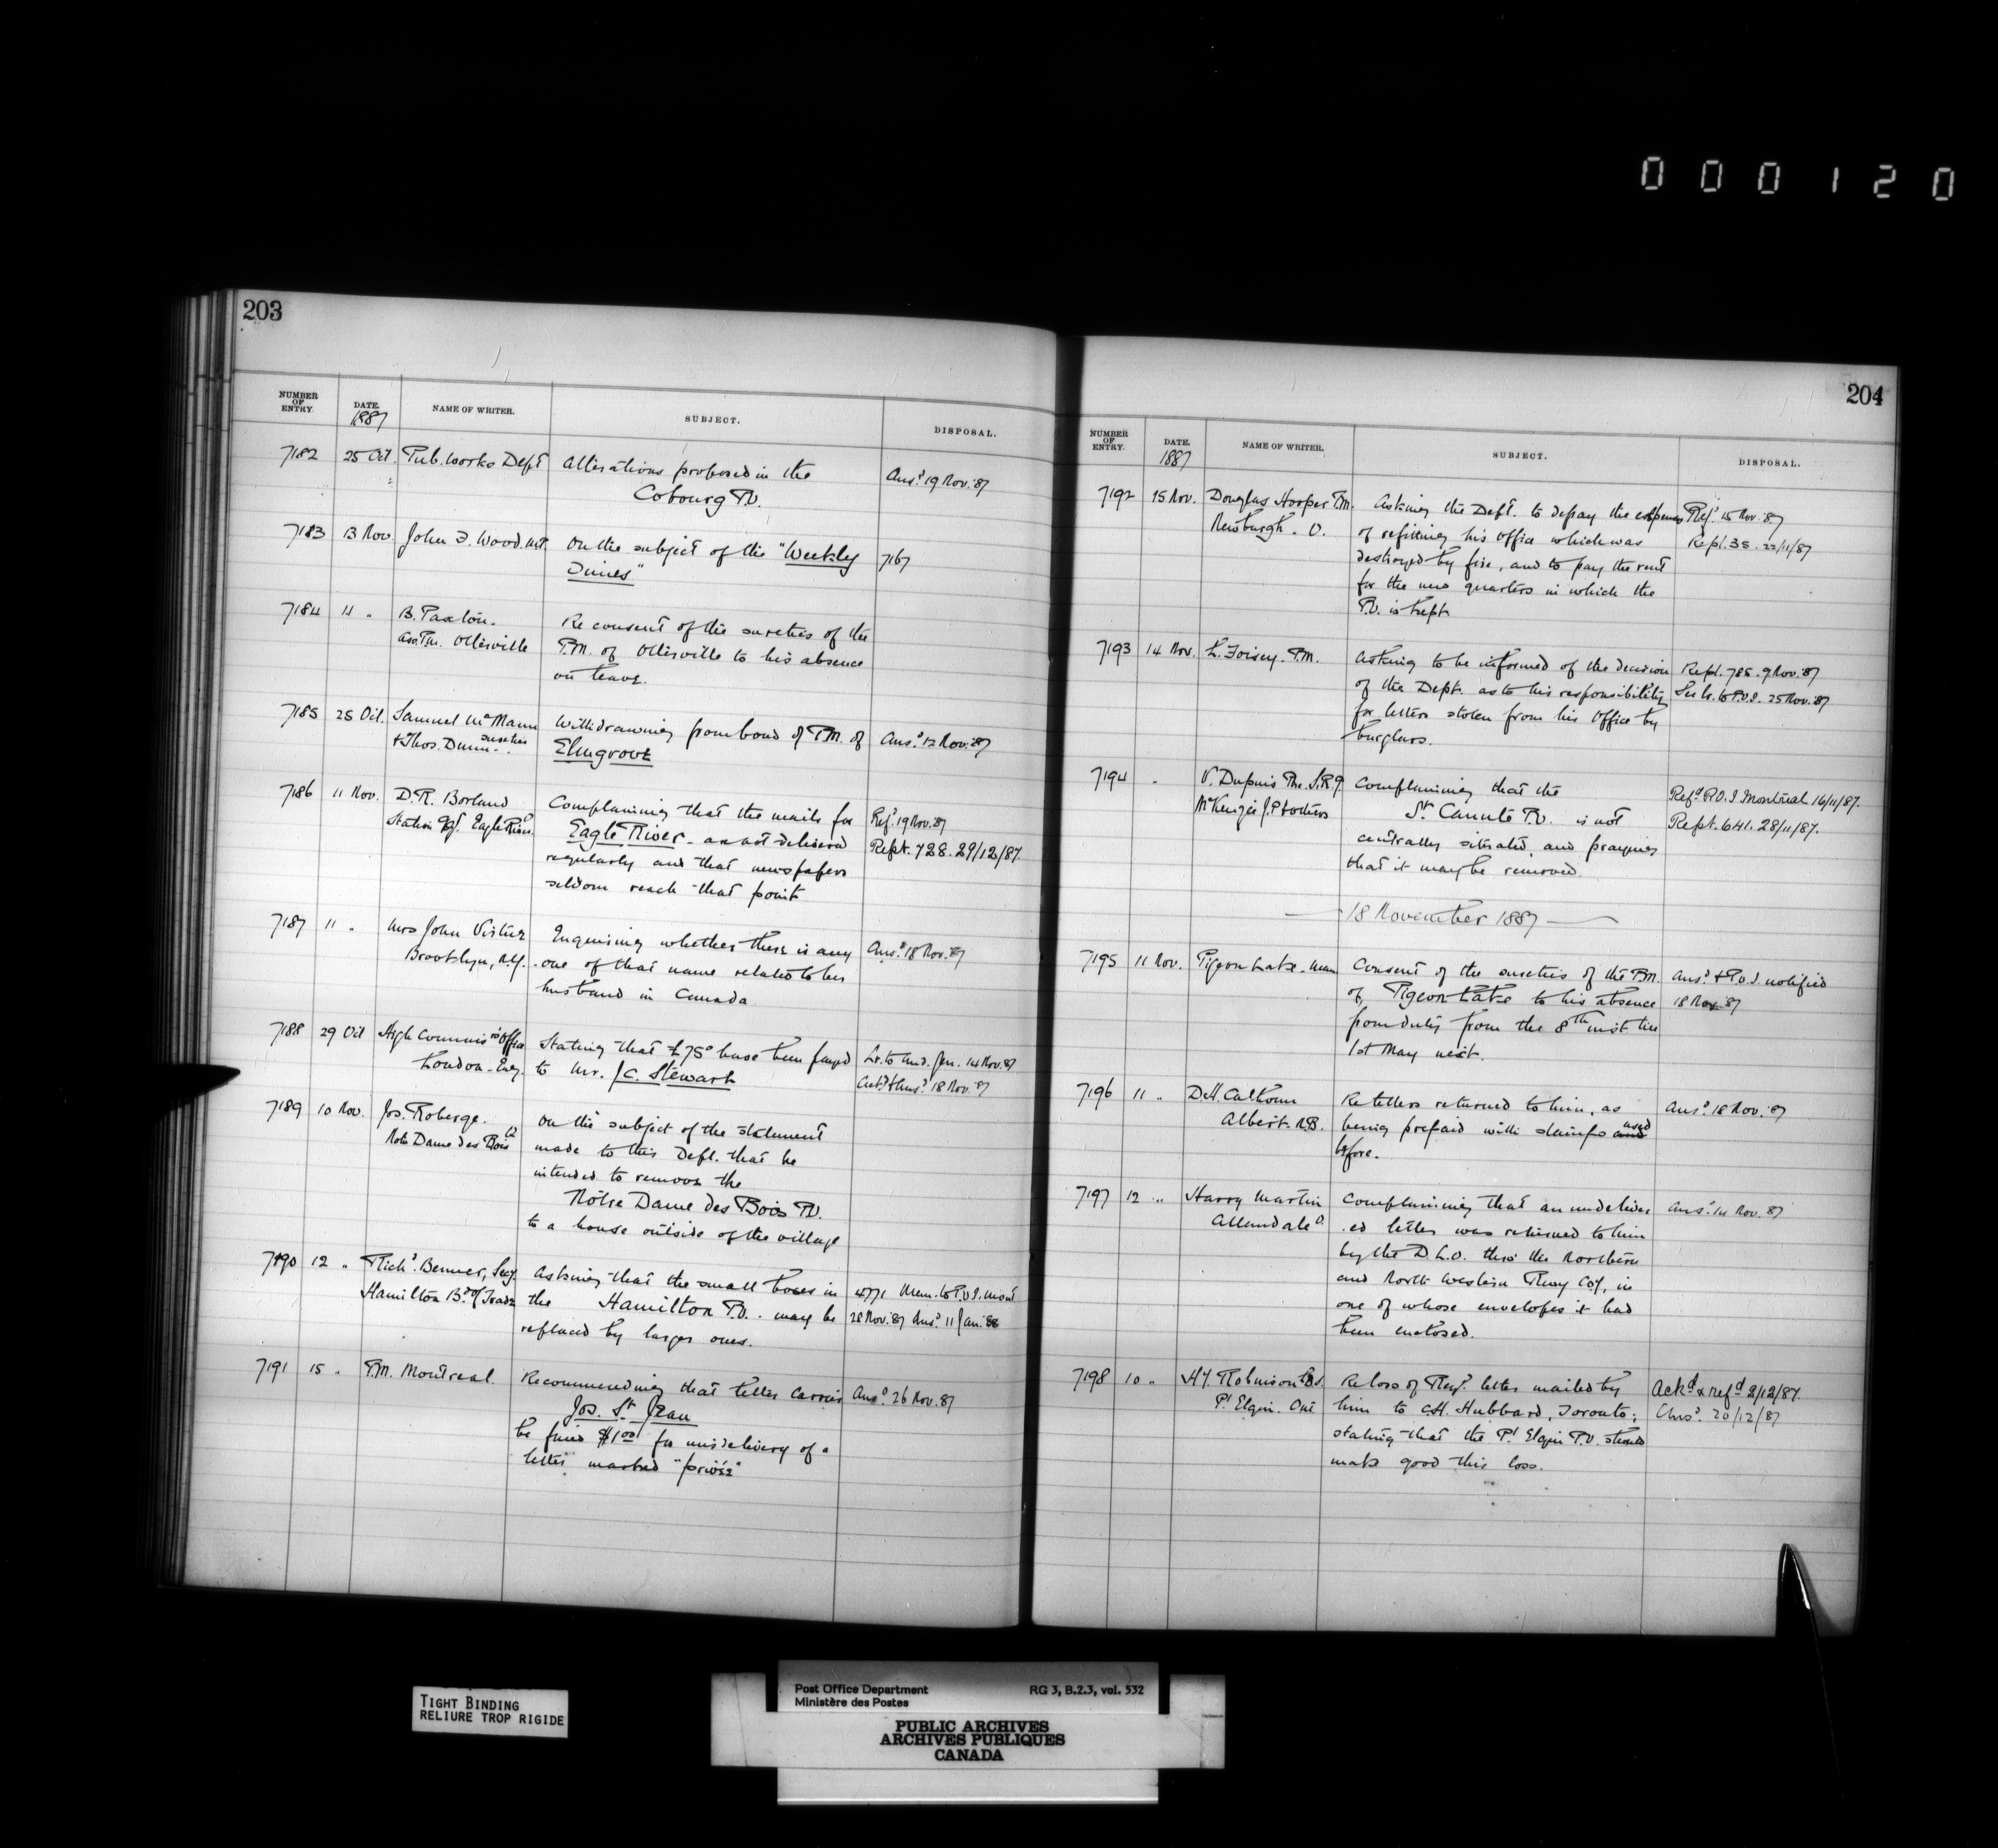 000120
203
NUMBER OF ENTRY.
DATE. 1887
NAME OF WRITER.
SUBJECT.
DISPOSAL.
7182 25 Oct. Pub. Works Dept Alterations proposed in the Ansd 19 Nov. '87
Cobourg P.O.
7183 13 Nov. John F. Wood. M.P. On the subject of the "Weekly 7167
Times"
7184 11 " B. Paxton. Re consent of the sureties of the
Ass. P.M. Otterville P.M. of Otterville to his absence
on leave.
7185 25 Oct. Samuel McMann Withdrawing from bond of P.M. of Ansd 12 Nov. '87
& Thos. Dunn - sureties Elmgrove
7186 11 Nov. D.R. Borland Complaining that the mails for Refd 19 Nov. '87
Station Agt. Eagle River Eagle River - are not delivered Rept. 728. 29/12/87
regularly and that newspapers
seldom reach that point
7187 11 " Mrs John Virtue Enquiring whether there is any Ansd 18 Nov. '87
Brooklyn, N.Y. one of that name related to her
husband in Canada.
7188 29 Oct High Commis'rs Office Stating that £75° have been paid Lr. to Aud. Gen. 14 Nov. 87
London - Eng. to Mr. J.C. Stewart Ansd 18 Nov. '87
7189 10 Nov. Jos. Roberge. On the subject of the statement
Notre Dame des Bois made to this Dept. that he
intended to remove the
Notre Dame des Bois P.O.
to a house outside of the village
7190 12 " Richd. Benner, Secy. Asking that the small boxes in 4771 Mem. to P.O.I. Mont
Hamilton Bd. of Trade the Hamilton P.O. may be 28 Nov. '87 Ansd. 11 Jan. 88
replaced by larger ones.
7191 15 " P.M. Montreal. Recommending that letter carrier Ansd. 26 Nov. 87
Jos. St Jean
be fined $1.00 for misdelivery of a
letter marked "privée"
204
NUMBER OF ENTRY.
DATE. 1887
NAME OF WRITER.
SUBJECT.
DISPOSAL.
7192 15 Nov. Douglas Hooper P.M. Asking the Dept. to defray the expenses Refd. 15 Nov. '87
Newburgh. O. of refitting his Office which was Rept. 35. 22/11/87
destroyed by fire, and to pay the rent
for the new quarters in which the
P.O. is kept
7193 14 Nov. L. Foisey. P.M. Asking to be informed of the decision Rept. 785. 9 Nov. '87
of the Dept. as to his responsibility See lr. to P.O.I. 25 Nov. '87
for letters stolen from his Office by
burglars.
7194 " V. Dupuis Pte. Complaining that the Refd P.O.I Montreal 16/11/87.
McKenzie J.P. & others St. Canute P.O. is not Rept. 641. 28/11/87.
centrally situated, and praying
that it may be removed.
18 November 1887
7195 11 Nov. Pigeon Lake - Man Consent of the sureties of the P.M. Ansd & P.O.I. notified
of Pigeon Lake to his absence 18 Nov. 87
from duty from the 8th inst till
1st May next.
7196 11 " D.H. Calhoun Re letters returned to him, as Ansd 18 Nov. '87
Albert. N.B. being prepaid with stamps used
before.
7197 12 " Harry Martin Complaining that an undeliver Ansd. 14 Nov. 87
Allandale O. .ed letter was returned to him
by the D.L.O. thro' the Northern
and North Western Rwy Coy, in
one of whose envelopes it had
been enclosed.
7198 10 " Hy. Robinson Re loss of Regd. letter mailed by Ackd & refd 2/12/87.
Pt Elgin. Ont him to C.H. Hubbard, Toronto; Ansd. 20/12/87
stating that the Pt Elgin P.O. should
make good this loss.
TIGHT BINDING
RELIURE TROP RIGIDE
Post Office Department RG 3, B.2.3, vol. 532
Ministère des Postes
PUBLIC ARCHIVES
ARCHIVES PUBLIQUES
CANADA